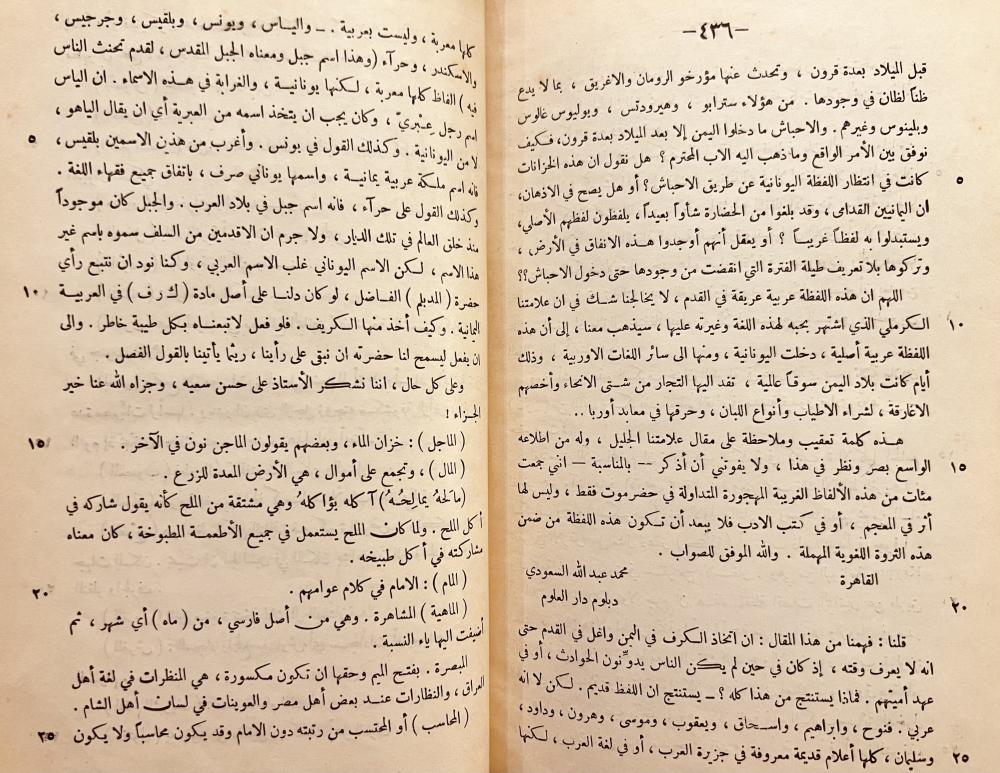 —٤٣٦—
قبل الميلاد بعدة قرون ، وتحدث عنها مؤرخو الرومان والاغريق ، بما لا يدع
ظناً لظان في وجودها . من هؤلاء سترابو ، وهيرودتس ، وبوليوس غالوس
وبلينوس وغيرهم . والاحباش ما دخلوا اليمن إلا بعد الميلاد بعدة قرون، فكيف
نوفق بين الأمر الواقع وما ذهب اليه الاب المحترم ؟ هل نقول ان هذه الخزانات
٥ كانت في انتظار اللفظة اليونانية عن طريق الاحباش؟ أو هل يصح في الاذهان،
ان اليمانيين القدامى، وقد بلغوا من الحضارة شأواً بعيداً، يلفظون لفظهم الأصلي،
ويستبدلوا به لفظاً غريباً ؟ أو يعقل أنهم أوجدوا هذه الانفاق في الأرض ،
وتركوها بلا تعريف طيلة الفترة التي انقضت من وجودها حتى دخول الاحباش؟؟
اللهم ان هذه اللفظة عربية عريقة في القدم ، لا يخالجنا شك في ان علامتنا
١٠ الكرملي الذي اشتهر بحبه لهذه اللغة وغيرته عليها ، سيذهب معنا ، إلى أن هذه
اللفظة عربية أصلية ، دخلت اليونانية ، ومنها الى سائر اللغات الاوربية ، وذلك
أيام كانت بلاد اليمن سوقاً عالمية ، تفد اليها التجار من شتى الانحاء وأخصهم
الاغارقة ، لشراء الاطياب وأنواع اللبان ، وحرقها في معابد أوربا ..
هذه كلمة تعقيب وملاحظة على مقال علامتنا الجليل ، وله من اطلاعه
١٥ الواسع بصر ونظر في هذا ، ولا يفوتني أن أذكر -- بالمناسبة — انني جمعت
مئات من هذه الألفاظ الغريبة المهجورة المتداولة في حضرموت فقط ، وليس لها
أثر في المعجم ، أو في كتب الادب فلا يبعد أن تكون هذه اللفظة من ضمن
هذه الثروة اللغوية المهملة . والله الموفق للصواب .
القاهرة محمد عبد الله السعودي
٢٠ دبلوم دار العلوم
قلنا : فهمنا من هذا المقال : ان اتخاذ الكرف في اليمن واغل في القدم حتى
انه لا يعرف وقته ، إذ كان في حين لم يكن الناس يدوّنون الحوادث ، أو في
عهد أميتهم . فماذا يستنتج من هذا كله ؟ ـ يستنتج ان اللفظ قديم . لكن لا انه
عربي . فنوح ، وابراهيم ، واسحاق ، ويعقوب ، وموسى ، وهرون ، وداود ،
٢٥ وسليمان ، كلها أعلام قديمة معروفة في جزيرة العرب ، أو في لغة العرب ، لكنها
كلها معربة ، وليست بعربية . ـ والياس ، ويونس ، وبلقيس ، وجرجيس ،
والاسكندر ، وحرآء (وهذا اسم جبل ومعناه الجبل المقدس ، لقدم تحنث الناس
فيه) الفاظ كلها معربة ، لكنها يونانية ، والغرابة في هذه الاسماء . ان الياس
اسم رجل عبْريّ ، وكان يجب ان يتخذ اسمه من العبرية أي ان يقال الياهو ،
لا من اليونانية . وكذلك القول في يونس . وأغرب من هذين الاسمين بلقيس ، ٥
فانه اسم ملكة عربية يمانية ، واسمها يوناني صرف ، باتفاق جميع فقهاء اللغة .
وكذلك القول على حرآء ، فانه اسم جبل في بلاد العرب . والجبل كان موجوداً
منذ خلق العالم في تلك الديار ، ولا جرم ان الاقدمين من السلف سموه باسم غير
هذا الاسم ، لكن الاسم اليوناني غلب الاسم العربي ، وكنا نود ان نتبع رأي
حضرة (المدبلم) الفاضل ، لو كان دلنا على أصل مادة (ك ر ف) في العربية ١٠
اليمانية . وكيف أخذ منها الكريف . فلو فعل لاتبعناه بكل طيبة خاطر . والى
ان يفعل ليسمح لنا حضرته ان نبقى على رأينا ، ريثما يأتينا بالقول الفصل .
وعلى كل حال ، اننا نشكر الأستاذ على حسن سعيه ، وجزاه الله عنا خير
الجزاء !
(الماجل) : خزان الماء، وبعضهم يقولون الماجن نون في الآخر . ١٥
(المال) ، وتجمع على أموال ، هي الأرض المعدة للزرع .
(مالحهُ يمالِحُهُ) آكله يؤاكلهُ وهي مشتقة من الملح كأنه يقول شاركه في
أكل الملح . ولما كان الملح يستعمل في جميع الأطعمة المطبوخة ، كان معناه
مشاركته في أكل طبيخه .
(المام) : الامام في كلام عوامهم . ٢٠
(الماهية) المشاهرة . وهي من أصل فارسي ، من (ماه) أي شهر ، ثم
أضيفت اليها ياء النسبة .
المبصرة . بفتح الميم وحقها ان تكون مكسورة ، هي المنظرات في لغة أهل
العراق ، والنظارات عند بعض أهل مصر والعوينات في لسان أهل الشام .
(المحاسب) أو المحتسب من رتبته دون الامام وقد يكون محاسباً ولا يكون ٢٥